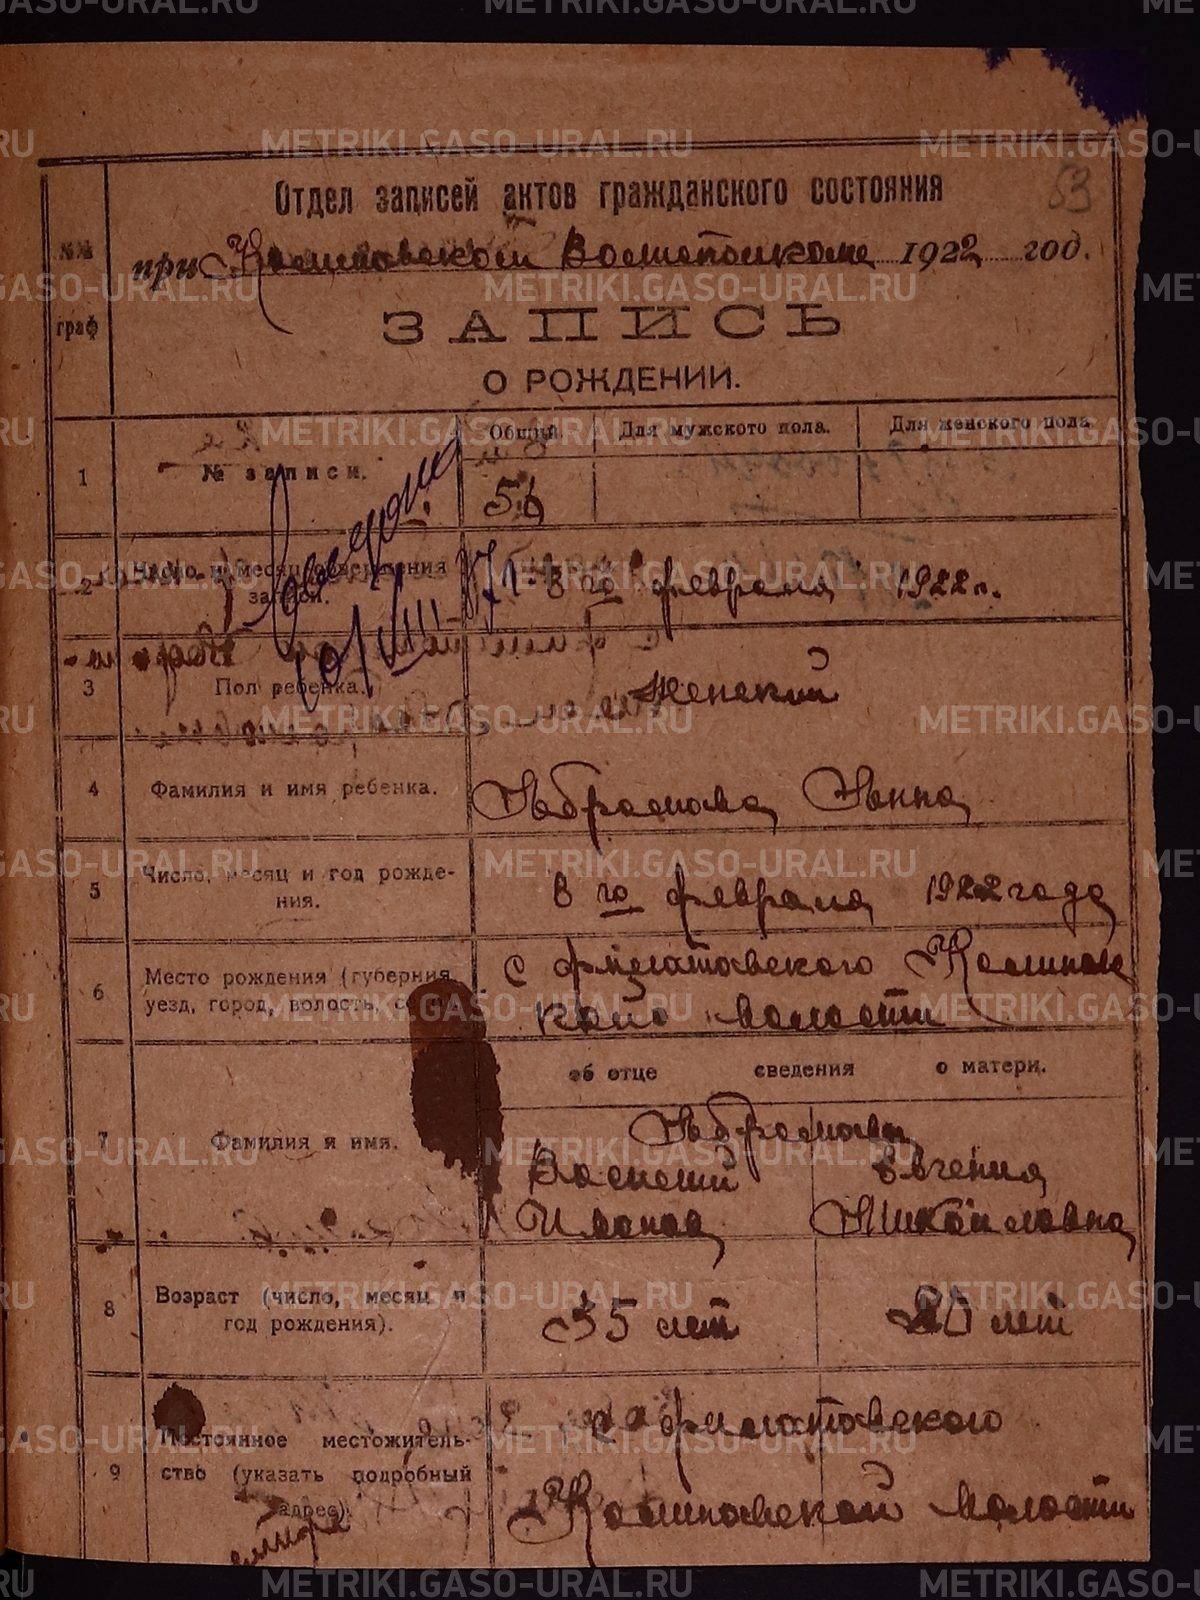 53
Отдел записей актов гражданского состояния
№№ граф
при Калиновском Волисполкоме 1922 год.
ЗАПИСЬ
О РОЖДЕНИИ.
Общий. Для мужского пола. Для женского пола
1 № записи. 56
2 Число и месяц записи. 8 го февраля 1922 г.
3 Пол ребенка. Женский
4 Фамилия и имя ребенка. Абрамова Анна
5 Число, месяц и год рожде-
ния. 8 го февраля 1922 года
6 Место рождения (губерния, с Филатовского Калинов
уезд, город, волость, ской волости
об отце сведения о матери.
7 Фамилия и имя. Абрамовы
Василий Евгения
Иванов Николовна
8 Возраст (число, месяц и
год рождения). 35 лет 20 лет
9 Постоянное местожитель- Филатовского
ство (указать подробный
адрес) Калиновской волости
METRIKI.GASO-URAL.RU